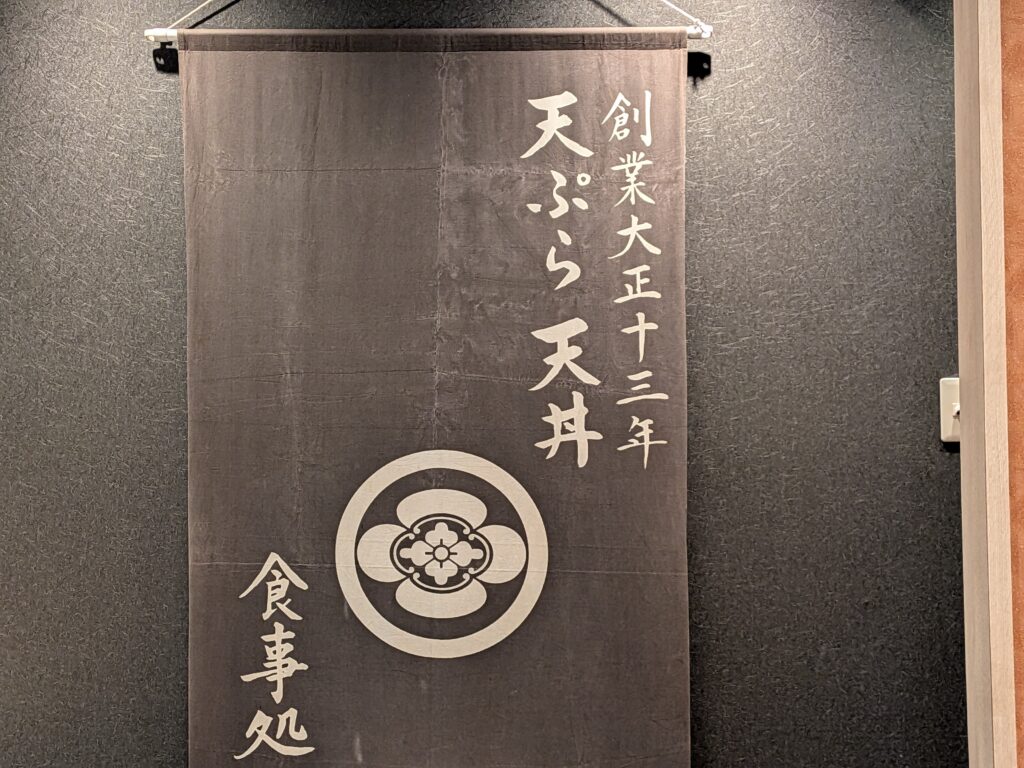 創業大正十三年
天ぷら 天丼
食事処